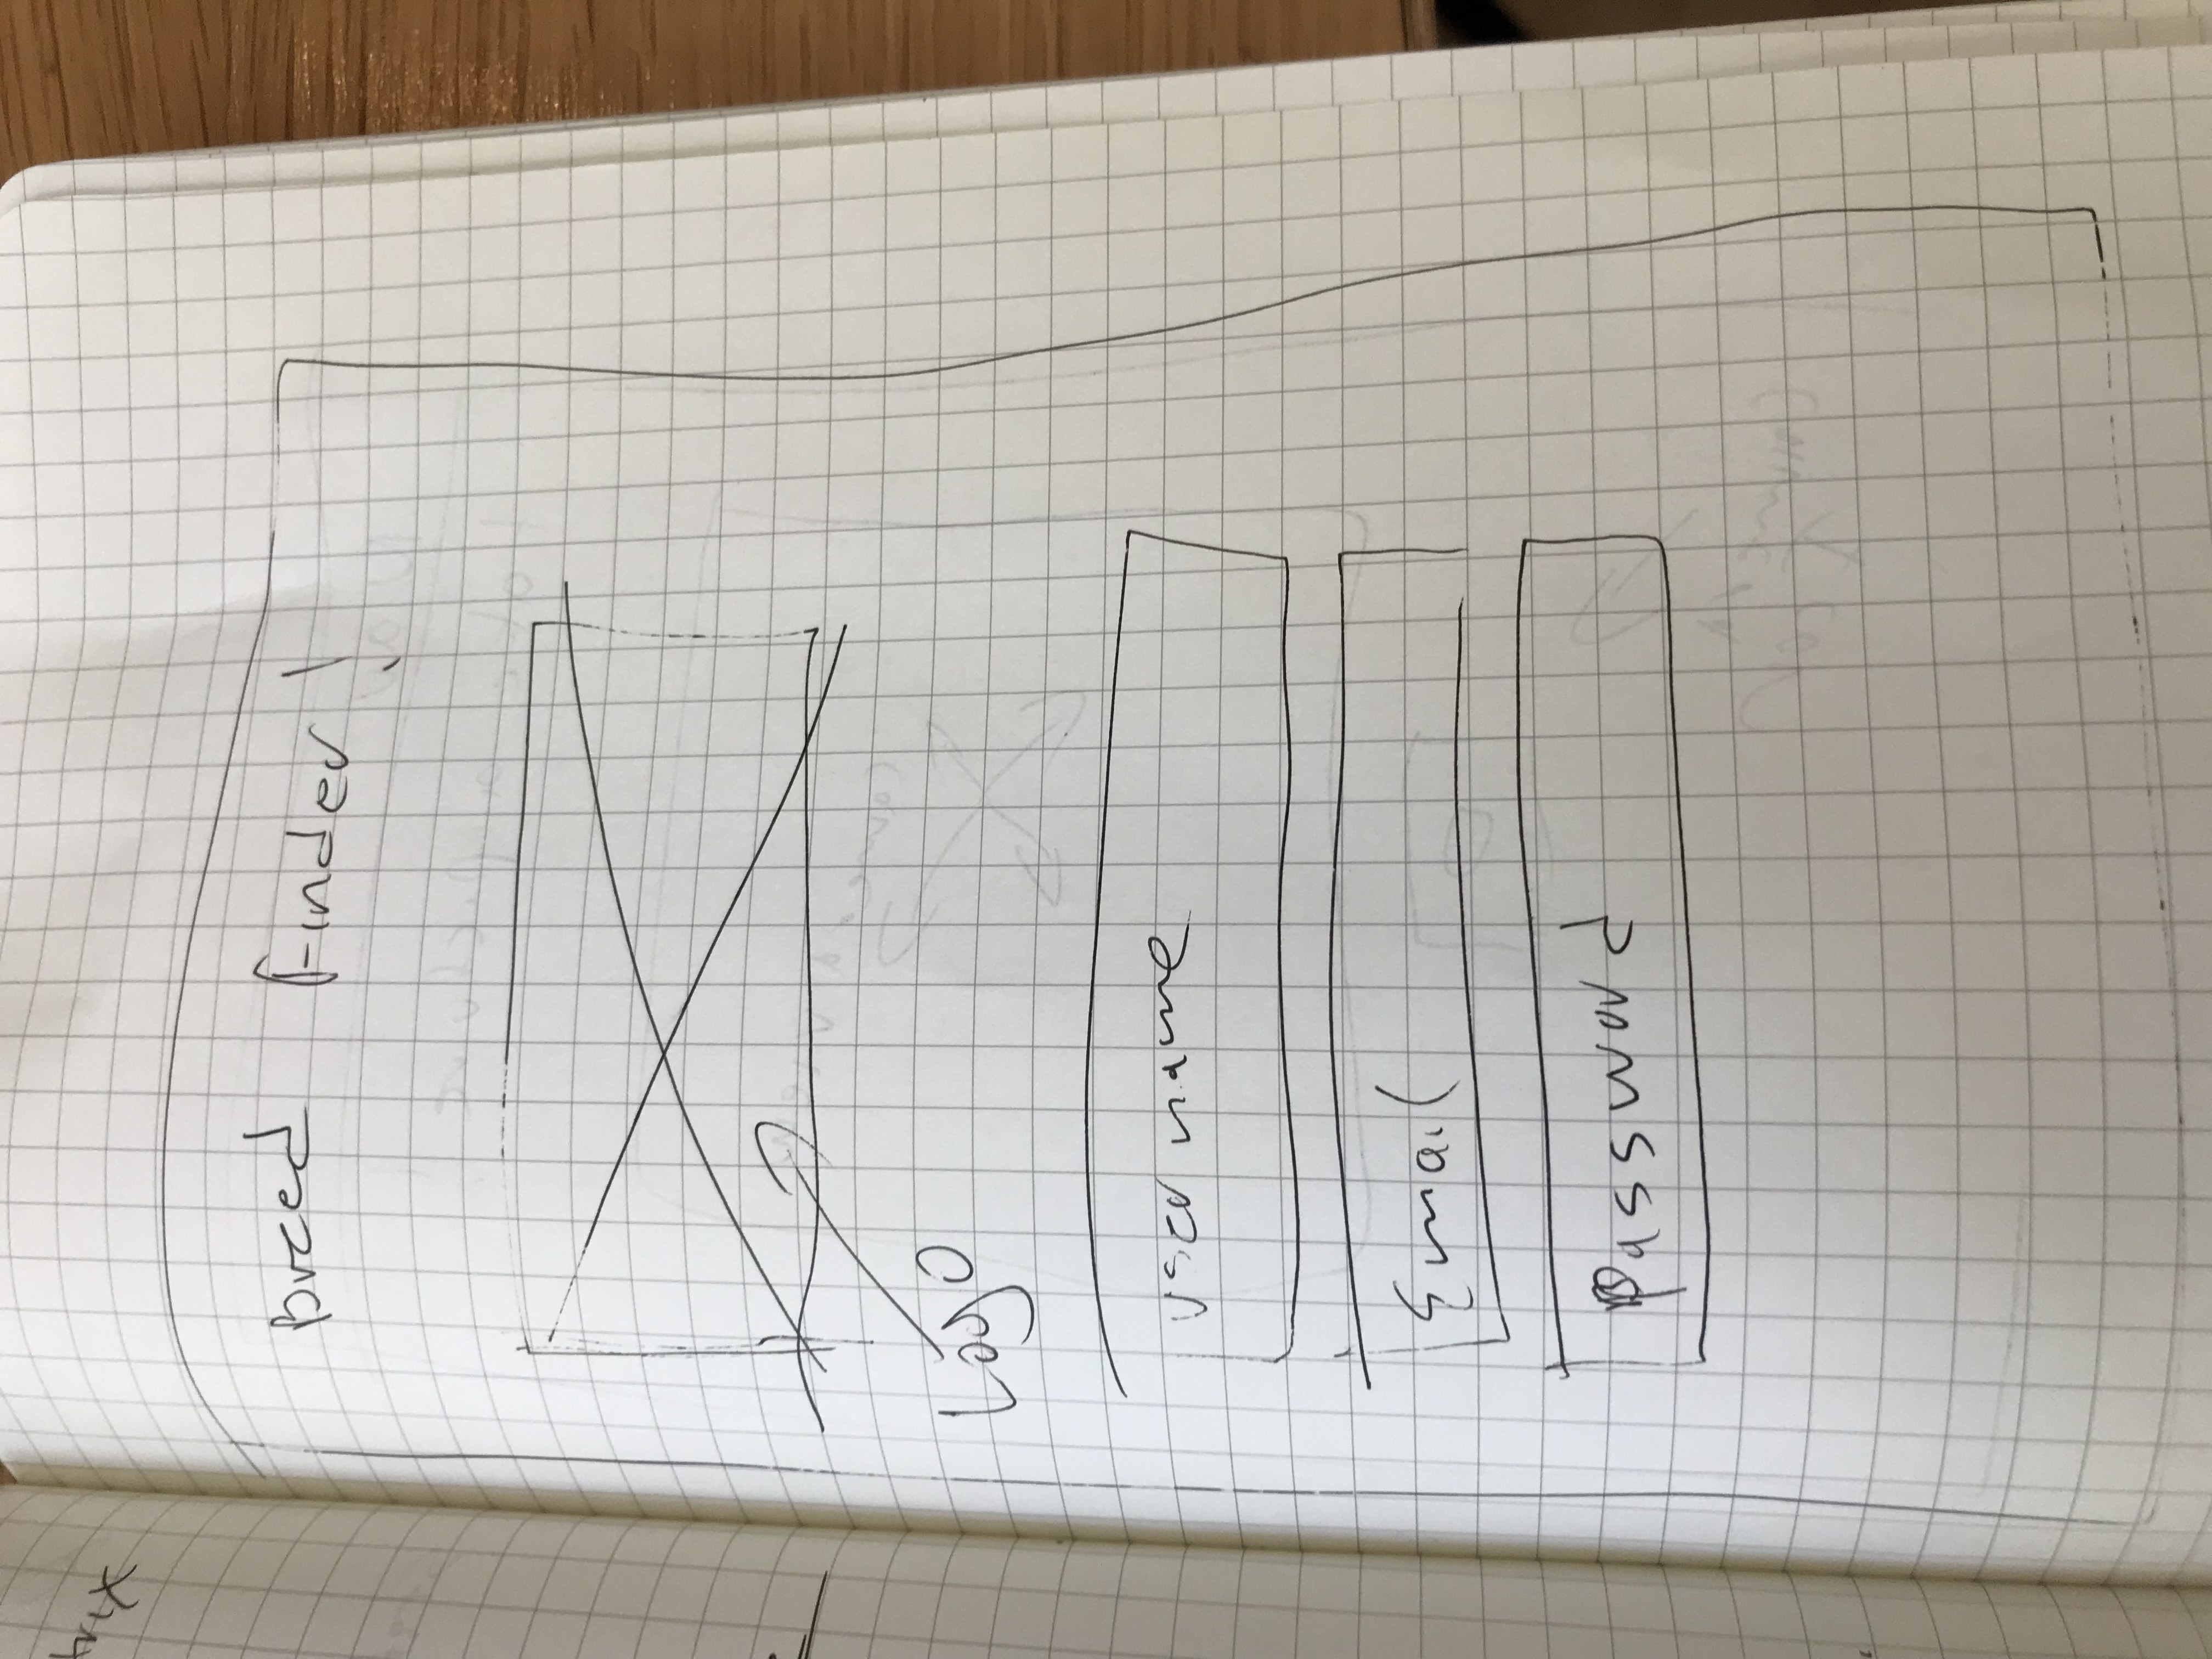 Breed Finder!
Logo
username
Email
Password